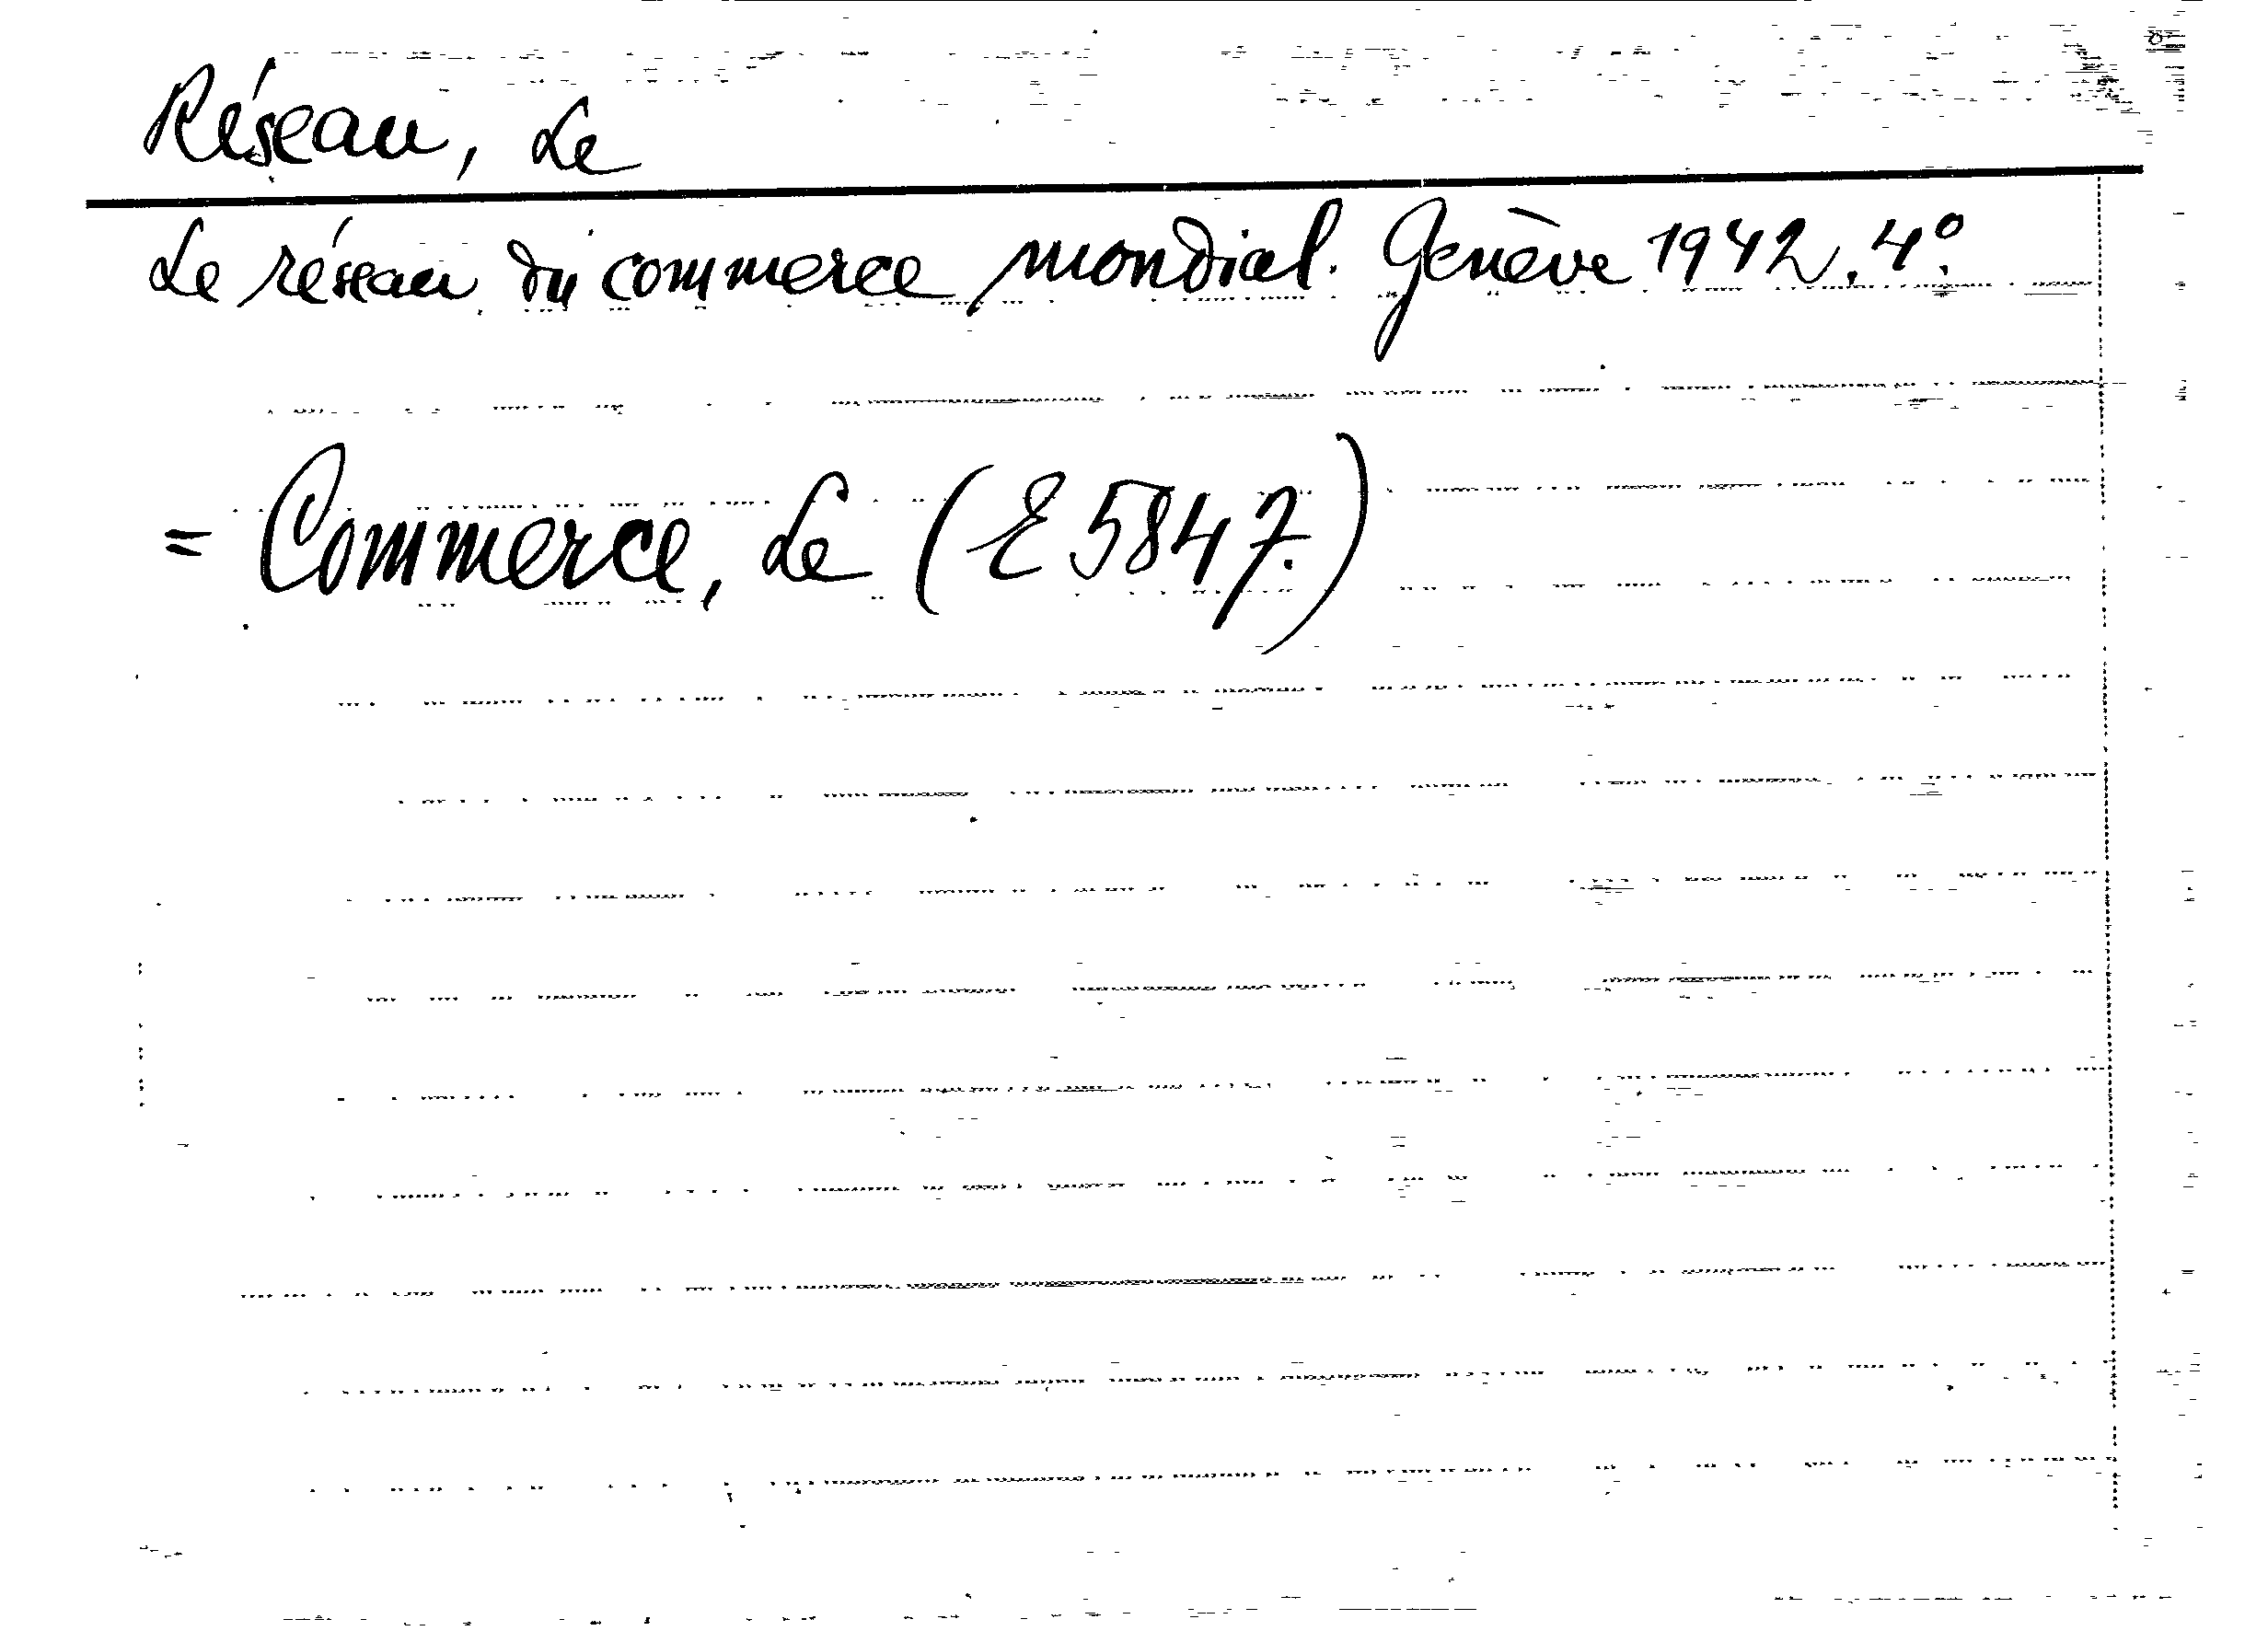 Réseau, Le
Le réseau du commerce mondial. Genève 1942. 4°.
= Commerce, Le (E 5847.)